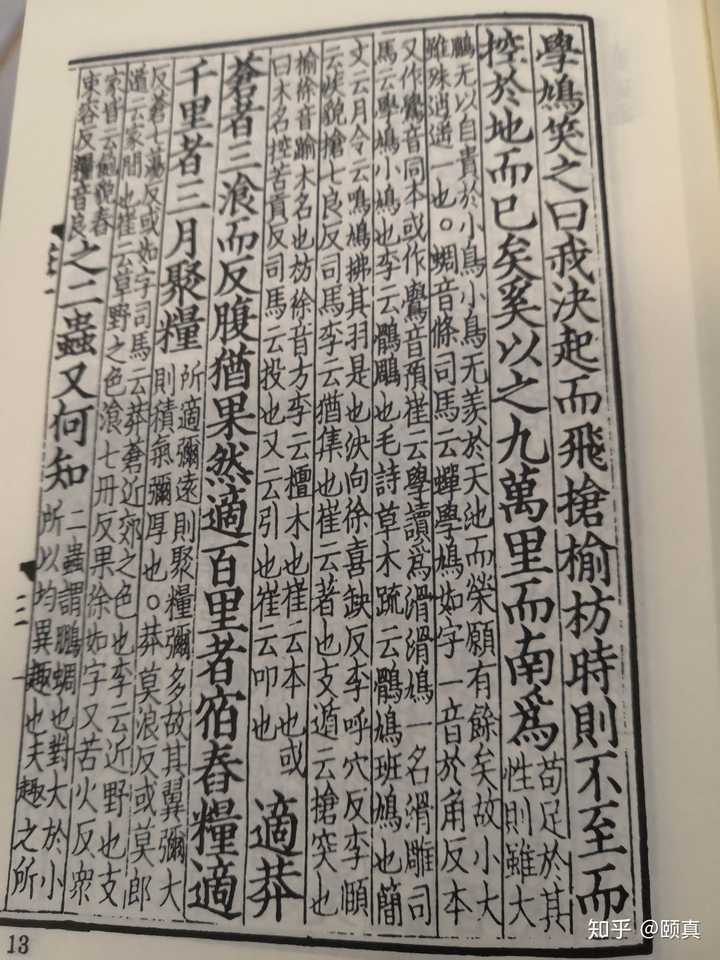 學鳩笑之曰我決起而飛搶榆枋時則不至而
控於地而已矣奚以之九萬里而南爲
苟足於其
性則雖大
鵬无以自貴於小鳥小鳥无羨於天池而榮願有餘矣故小大
雖殊逍遥一也。蜩音條司馬云蟬學鳩如字一音於角反本
又作鷽音同本或作鸒音預崔云學讀爲滑滑鳩一名滑雕司
馬云學鳩小鳩也李云鶻鵰也毛詩草木疏云鶻鳩班鳩也簡
文云月令云鳴鳩拂其羽是也決向徐喜缺反李呼穴反李頤
云疾貌搶七良反司馬李云猶集也崔云著也支遁云搶突也
榆徐音踰木名也枋徐音方李云檀木也崔云本也或
曰木名控苦貢反司馬云投也又云引也崔云叩也
適莽
蒼者三湌而反腹猶果然適百里者宿舂糧適
千里者三月聚糧
所適彌遠則聚糧彌多故其翼彌大
則積氣彌厚也。莽莫浪反或莫郎
反蒼七蕩反或如字司馬云莽蒼近郊之色也李云近野也支
遁云冢間也崔云草野之色湌七丹反果徐如字又苦火反衆
家皆云飽貌舂
束容反糧音良
之二蟲又何知
二蟲謂鵬蜩也對大於小
所以均異趣也夫趣之所
三
13
知乎 @颐真